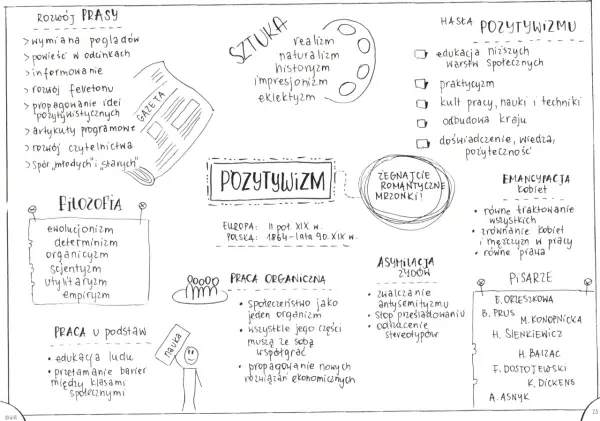 ROZWÓJ PRASY
> wymiana poglądów
> powieść w odcinkach
> informowanie
> rozwój felietonu
> propagowanie idei
pozytywistycznych
> artykuły programowe
> rozwój czytelnictwa
> spór „młodych" i „starych"
GAZETA
SZTUKA
realizm
naturalizm
historyzm
impresjonizm
eklektyzm
HASŁA POZYTYWIZMU
edukacja niższych
warstw społecznych
praktycyzm
kult pracy, nauki i techniki
odbudowa kraju
doświadczenie, wiedza,
pożyteczność
FILOZOFIA
ewolucjonizm
determinizm
organicyzm
scjentyzm
utylitaryzm
empiryzm
POZYTYWIZM
EUROPA: II poł. XIX w.
POLSKA: 1864 - lata 90. XIX w.
ŻEGNAJCIE
ROMANTYCZNE
MRZONKI!
EMANCYPACJA
kobiet
• równe traktowanie
wszystkich
• zrównanie kobiet
i mężczyzn w pracy
• równe prawa
PRACA U podstaw
• edukacja ludu
• przełamanie barier
między klasami
społecznymi
nauka
PRACA ORGANICZNA
• społeczeństwo jako
jeden organizm
• wszystkie jego części
muszą ze sobą
współgrać
• propagowanie nowych
rozwiązań ekonomicznych
ASYMILACJA
ŻYDÓW
• zwalczanie
antysemityzmu
• stop prześladowaniu
• odrzucenie
stereotypów
PISARZE
E. ORZESZKOWA
B. PRUS
M. KONOPNICKA
H. SIENKIEWICZ
H. BALZAC
F. DOSTOJEWSKI
K. DICKENS
A. ASNYK
25